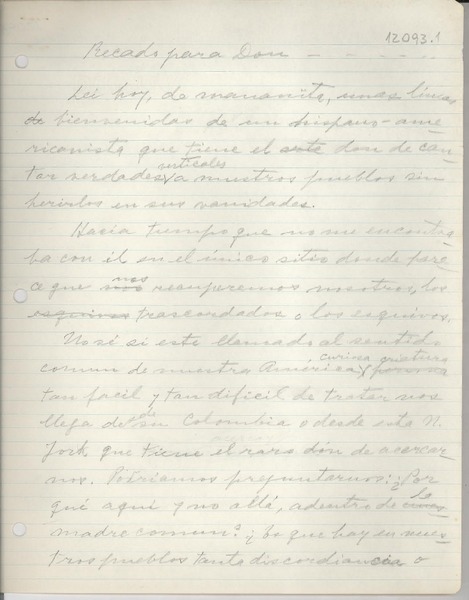 12093.1
Recado para Don — — — — —
Leí hoy, de mañanita, unas líneas
de bienvenidas de un hispano-ame
ricanista que tiene el arte don de can
verticales
tar verdades a nuestros pueblos sin
herirlos en sus vanidades.
Hacía tiempo que no me encontra
ba con él en el único sitio donde pare
ce que nos nos recuperemos nosotros, los
esquivos trascordados o los esquivos.
No sé si este llamado al sentido
curiosa criatura
comun de nuestra América y
tan facil y tan dificil de tratar nos
llega de su Colombia o desde esta N.
York, que tiene el raro dón de acercar
nos. Podríamos preguntarnos: ¿Por
qué aquí y no allá, adentro de la
madre comun? ¿Lo que hay en nues
tros pueblos tanta discordiancia o